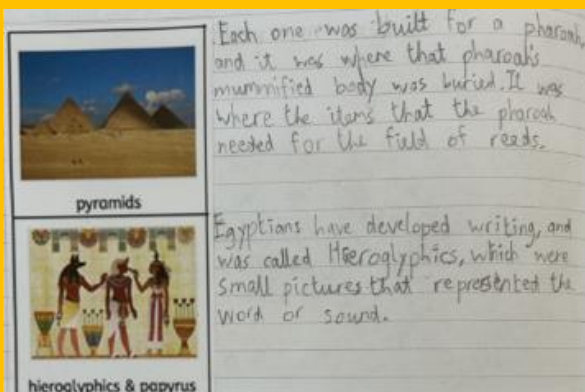 Each one was built for a pharoah,
and it was where that pharoah's
mummified body was buried. It was
where the items that the pharoah
needed for the field of reeds.
pyramids
Egyptians have developed writing, and
was called Hieroglyphics, which were
small pictures that represented the
word or sound.
hieroglyphics & papyrus